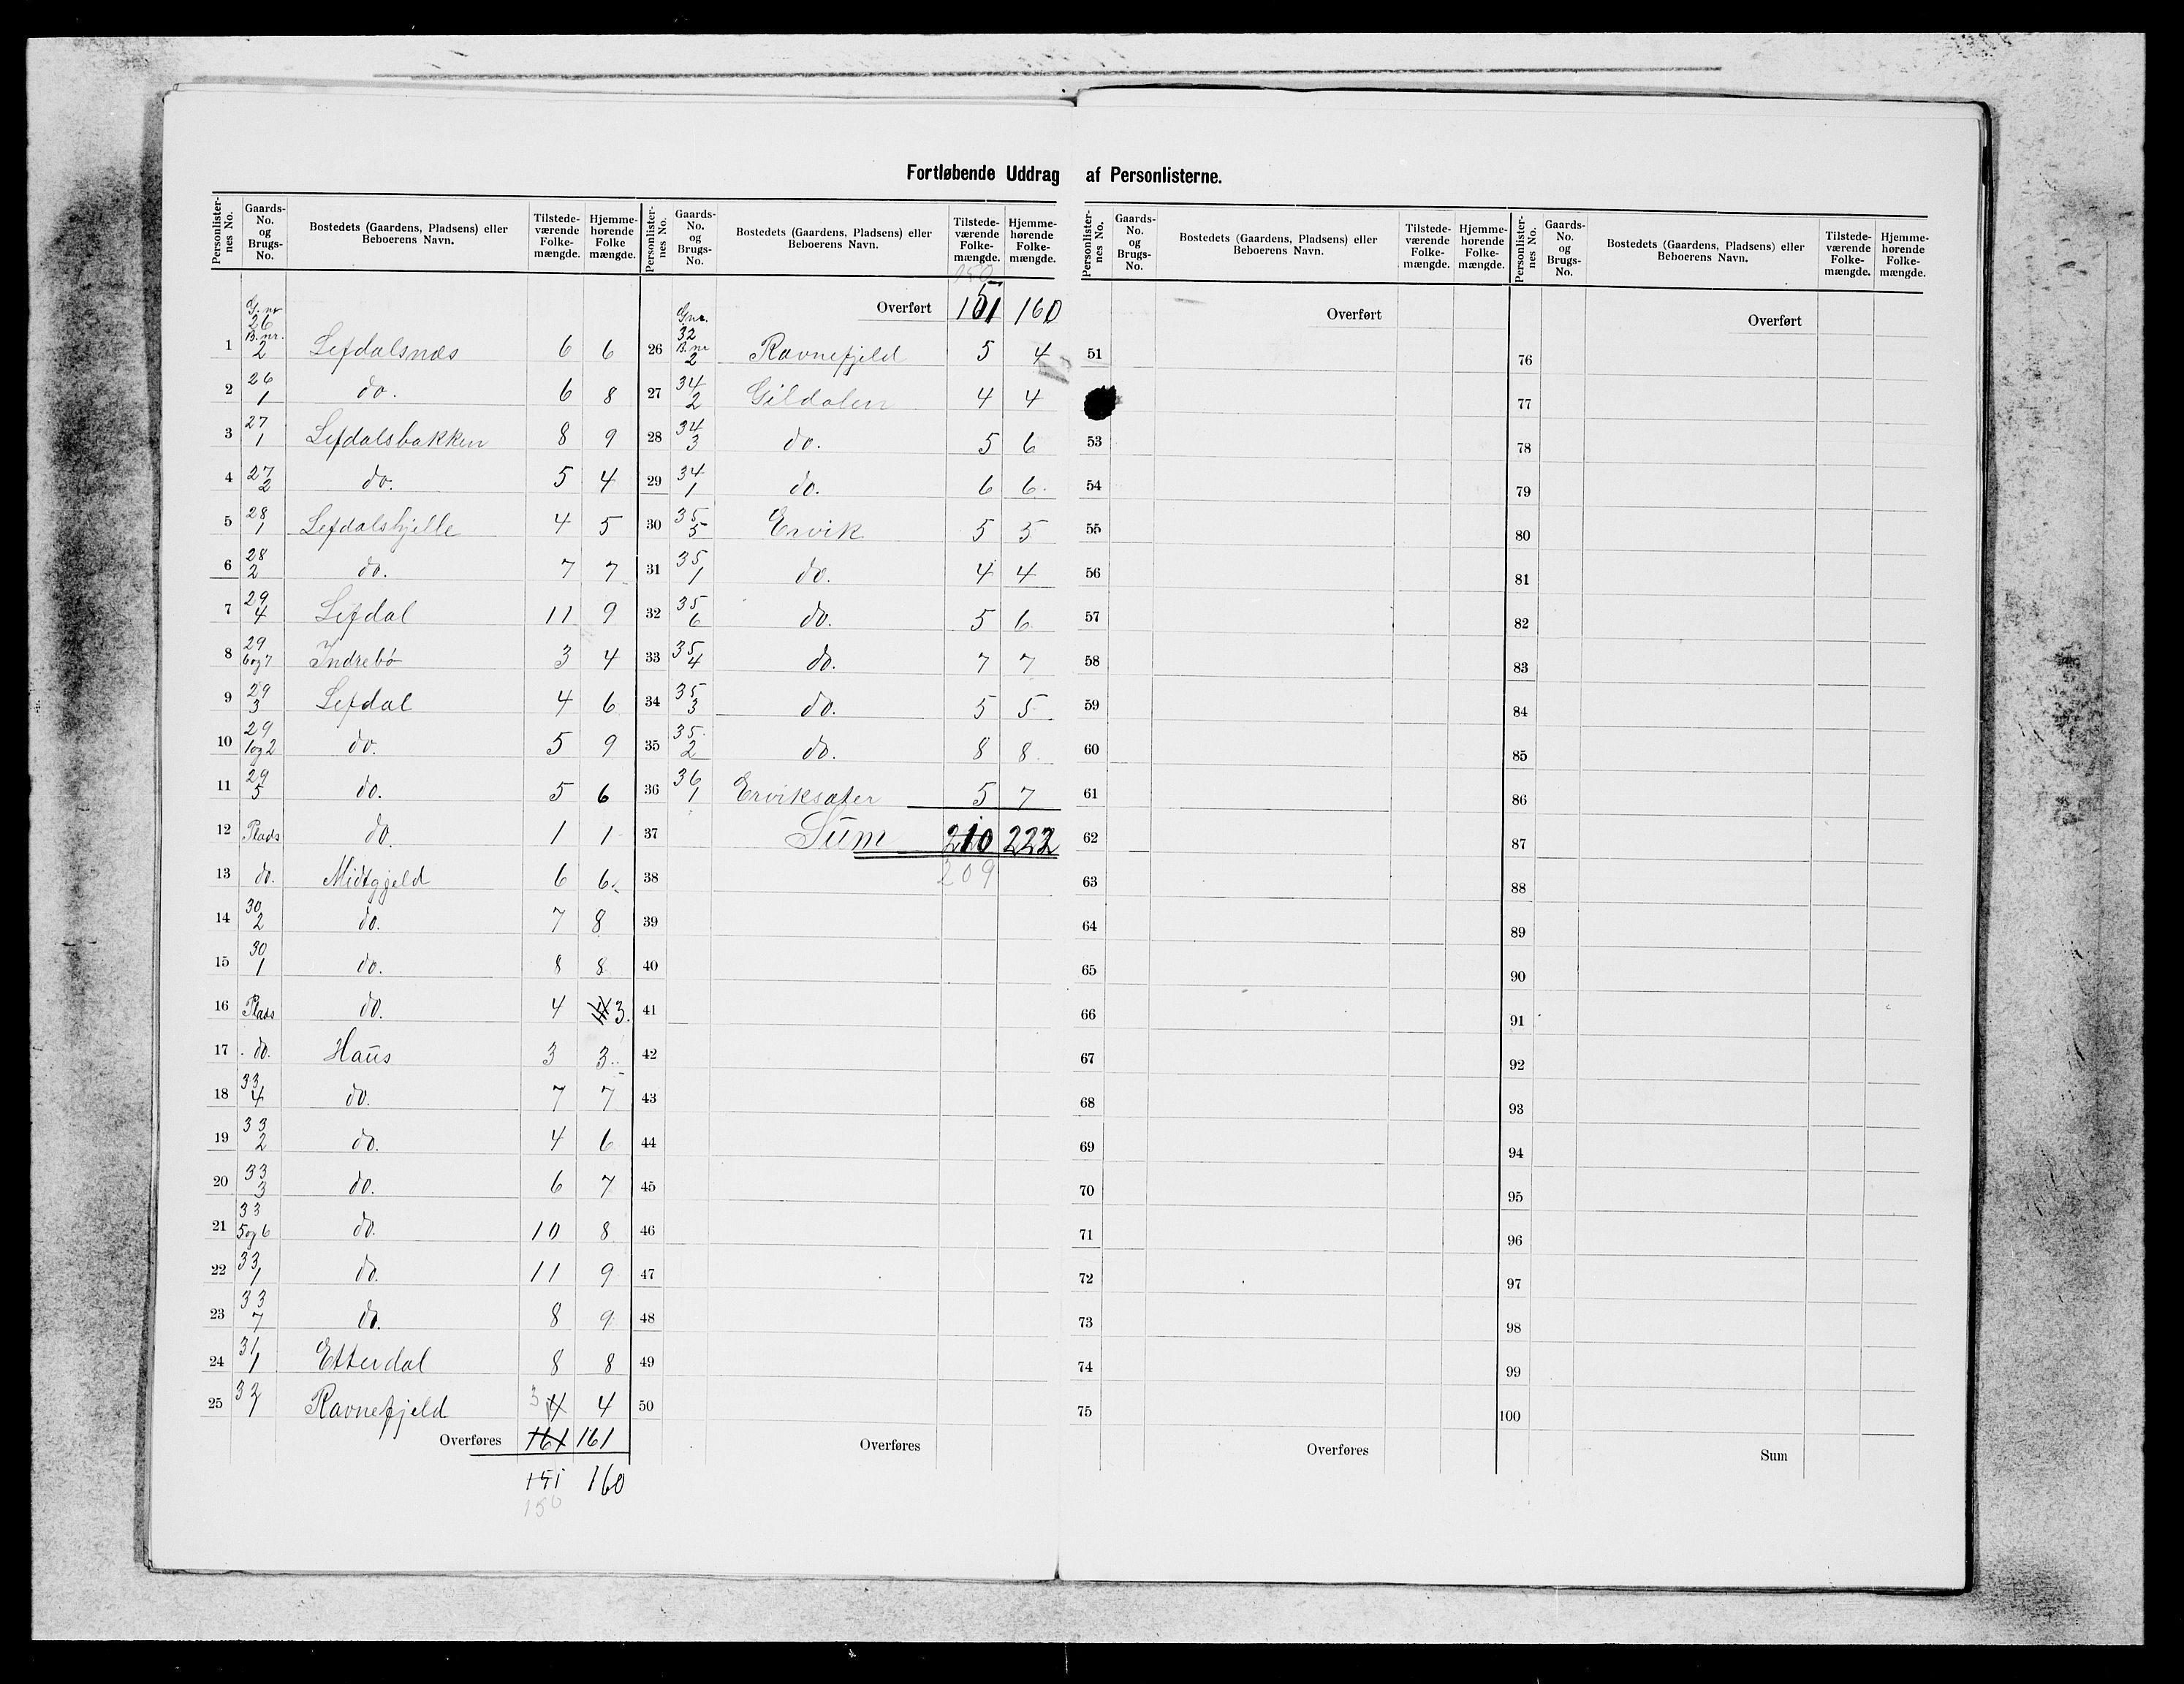 Fortløbende Uddrag af Personlisterne.
Personlister-nes No. | Gaards-No. og Brugs-No. | Bostedets (Gaardens, Pladsens) eller Beboerens Navn. | Tilstede-værende Folke-mængde. | Hjemme-hørende Folke mængde.
1 | G. nr 26 B. nr. 2 | Lefdalsnæs | 6 | 6
2 | 26 1 | do. | 6 | 8
3 | 27 1 | Lefdalsbakken | 8 | 9
4 | 27 2 | do. | 5 | 4
5 | 28 1 | Lefdalshjelle | 4 | 5
6 | 28 2 | do. | 7 | 7
7 | 29 4 | Lefdal | 11 | 9
8 | 29 6og7 | Indrebö | 3 | 4
9 | 29 3 | Lefdal | 4 | 6
10 | 29 1og2 | do. | 5 | 9
11 | 29 5 | do. | 5 | 6
12 | Plads | do. | 1 | 1
13 | do. | Midtgjeld | 6 | 6
14 | 30 2 | do. | 7 | 8
15 | 30 1 | do. | 8 | 8
16 | Plads | do. | 4 | 3.
17 | do. | Haus | 3 | 3
18 | 33 4 | do. | 7 | 7
19 | 33 2 | do. | 4 | 6
20 | 33 3 | do. | 6 | 7
21 | 33 5og6 | do. | 10 | 8
22 | 33 1 | do. | 11 | 9
23 | 33 7 | do. | 8 | 9
24 | 31 1 | Etterdal | 8 | 8
25 | 32 1 | Ravnefjeld | 3 4 | 4
Overføres | 161 | 161
151 | 160
150
Personlister-nes No. | Gaards-No. og Brugs-No. | Bostedets (Gaardens, Pladsens) eller Beboerens Navn. | Tilstede-værende Folke-mængde. | Hjemme-hørende Folke-mængde.
150
Overført | 151 | 160
26 | Gnr. 32 B. nr 2 | Ravnefjeld | 5 | 4
27 | 34 2 | Gildalen | 4 | 4
28 | 34 3 | do. | 5 | 6
29 | 34 1 | do. | 6 | 6
30 | 35 5 | Ervik | 5 | 5
31 | 35 1 | do. | 4 | 4
32 | 35 6 | do. | 5 | 6
33 | 35 4 | do. | 7 | 7
34 | 35 3 | do. | 5 | 5
35 | 35 2 | do. | 8 | 8
36 | 36 1 | Erviksæter | 5 | 7
37 | Sum | 210 | 222
38 | 209
39
40
41
42
43
44
45
46
47
48
49
50
Overføres
Personlister-nes No. | Gaards-No. og Brugs-No. | Bostedets (Gaardens, Pladsens) eller Beboerens Navn. | Tilstede-værende Folke-mængde. | Hjemme-hørende Folke-mængde.
Overført
51
53
54
55
56
57
58
59
60
61
62
63
64
65
66
67
68
69
70
71
72
73
74
75
Overføres
Personlister-nes No. | Gaards-No. og Brugs-No. | Bostedets (Gaardens, Pladsens) eller Beboerens Navn. | Tilstede-værende Folke-mængde. | Hjemme-hørende Folke-mængde.
Overført
76
77
78
79
80
81
82
83
84
85
86
87
88
89
90
91
92
93
94
95
96
97
98
99
100
Sum